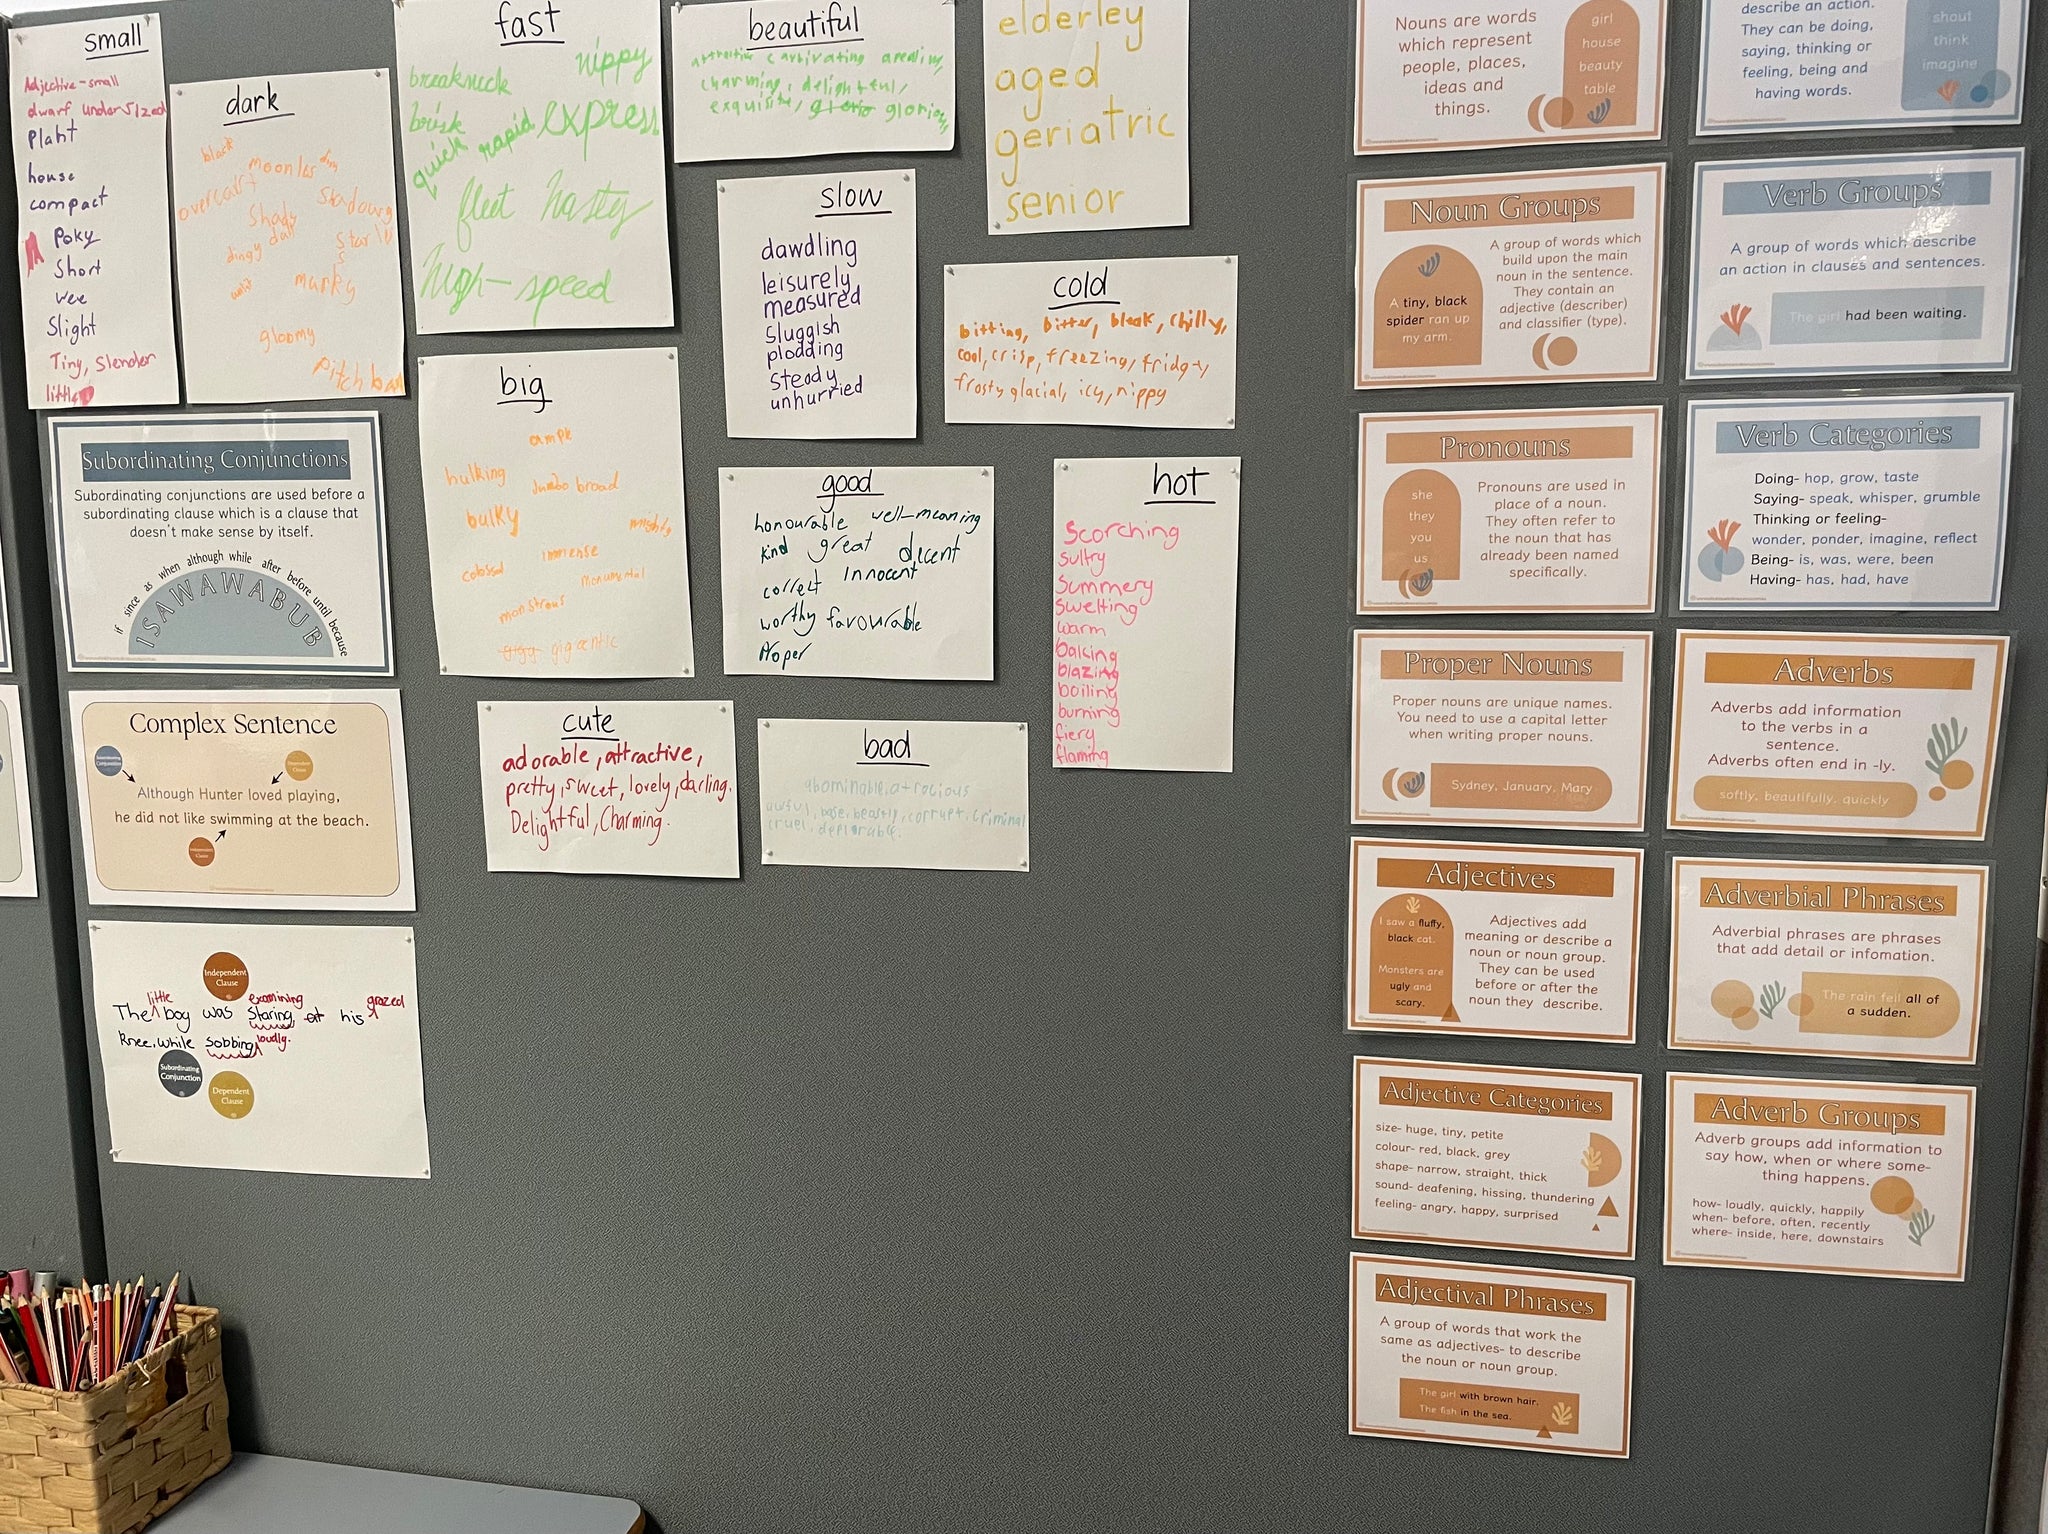 small
Adjective-small
dwarf undersized
Plant
house
compact
Poky
Short
wee
Slight
Tiny, Slender
little
dark
black
moonless
dim
overcast
Shadowy
Shady
dark
dingy
unlit
murky
gloomy
Pitch
fast
breakneck
nippy
brisk
rapid
express
quick
fleet hasty
high-speed
beautiful
charming, delightful,
exquisite,
slow
dawdling
leisurely
measured
sluggish
plodding
steady
unhurried
elderley
aged
geriatric
senior
cold
bitting, bitter, bleak, chilly,
cool, crisp, freezing, fridgty
frosty glacial, icy, nippy
big
ample
hulking
Jumbo broad
bulky
mighty
immense
colossal
monumental
monstrous
gigg gigcentic
good
honourable well-meaning
kind great decent
correct Innocent
worthy favourable
Proper
hot
Scorching
sultry
Summery
Swelting
warm
baking
blazing
boiling
burning
fiery
flaming
cute
adorable, attractive,
pretty, sweet, lovely, darling.
Delightful, Charming.
bad
abominable, atrocious
awful, base, beastly, corrupt, criminal
cruel, deplorable.
Subordinating Conjunctions
Subordinating conjunctions are used before a
subordinating clause which is a clause that
doesn't make sense by itself.
if since as when although while after before until because
ISAWAWABUB
Complex Sentence
Subordinating Conjunction
Dependent Clause
Although Hunter loved playing,
he did not like swimming at the beach.
Independent Clause
Independent
Clause
little examining grazed
The boy was staring, at his
Knee, while sobbing loudly.
Subordinating
Conjunction
Dependent
Clause
Nouns are words
which represent
people, places,
ideas and
things.
girl
house
beauty
table
describe an action.
They can be doing,
saying, thinking or
feeling, being and
having words.
shout
think
imagine
Noun Groups
A group of words which
build upon the main
noun in the sentence.
They contain an
adjective (describer)
and classifier (type).
A tiny, black
spider ran up
my arm.
Verb Groups
A group of words which describe
an action in clauses and sentences.
The girl had been waiting.
Pronouns
she
they
you
us
Pronouns are used in
place of a noun.
They often refer to
the noun that has
already been named
specifically.
Verb Categories
Doing- hop, grow, taste
Saying- speak, whisper, grumble
Thinking or feeling-
wonder, ponder, imagine, reflect
Being- is, was, were, been
Having- has, had, have
Proper Nouns
Proper nouns are unique names.
You need to use a capital letter
when writing proper nouns.
Sydney, January, Mary
Adverbs
Adverbs add information
to the verbs in a
sentence.
Adverbs often end in -ly.
softly, beautifully, quickly
Adjectives
I saw a fluffy,
black cat.
Monsters are
ugly and
scary.
Adjectives add
meaning or describe a
noun or noun group.
They can be used
before or after the
noun they describe.
Adverbial Phrases
Adverbial phrases are phrases
that add detail or infomation.
The rain fell all of
a sudden.
Adjective Categories
size- huge, tiny, petite
colour- red, black, grey
shape- narrow, straight, thick
sound- deafening, hissing, thundering
feeling- angry, happy, surprised
Adverb Groups
Adverb groups add information to
say how, when or where some-
thing happens.
how- loudly, quickly, happily
when- before, often, recently
where- inside, here, downstairs
Adjectival Phrases
A group of words that work the
same as adjectives- to describe
the noun or noun group.
The girl with brown hair.
The fish in the sea.